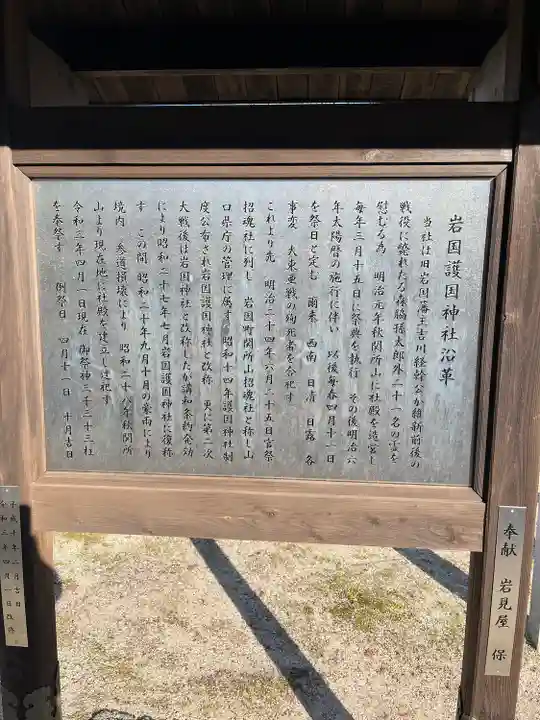 岩国護国神社沿革
当社は旧岩国藩主吉川経幹公が維新前後の
戦役に斃れたる森脇孫太郎外二十一名の霊を
慰むる為 明治元年秋関所山に社殿を造営し
毎年三月十五日に祭典を執行 その後明治六
年太陽暦の施行に伴い 以後毎春四月十一日
を祭日と定む 爾来 西南 日清 日露 各
事変 大東亜戦の殉死者を合祀す
これより先 明治三十四年六月二十五日官祭
招魂社に列し 岩国町関所山招魂社と称し山
口県庁の管理に属す 昭和十四年護国神社制
度公布され岩国護国神社と改称 更に第二次
大戦後は岩国神社と改称したが講和条約発効
により昭和二十七年七月岩国護国神社に復称
す この間 昭和二十年九月十月の豪雨により
境内 参道損壊により 昭和二十八年秋関所
山より現在地に社殿を建立し遷祀す
令和三年四月一日現在 御祭神三千二十三柱
を奉祭す 例祭日 四月十一日 十月吉日
奉献 岩見屋 保
平成十年二月吉日
令和三年四月一日改修